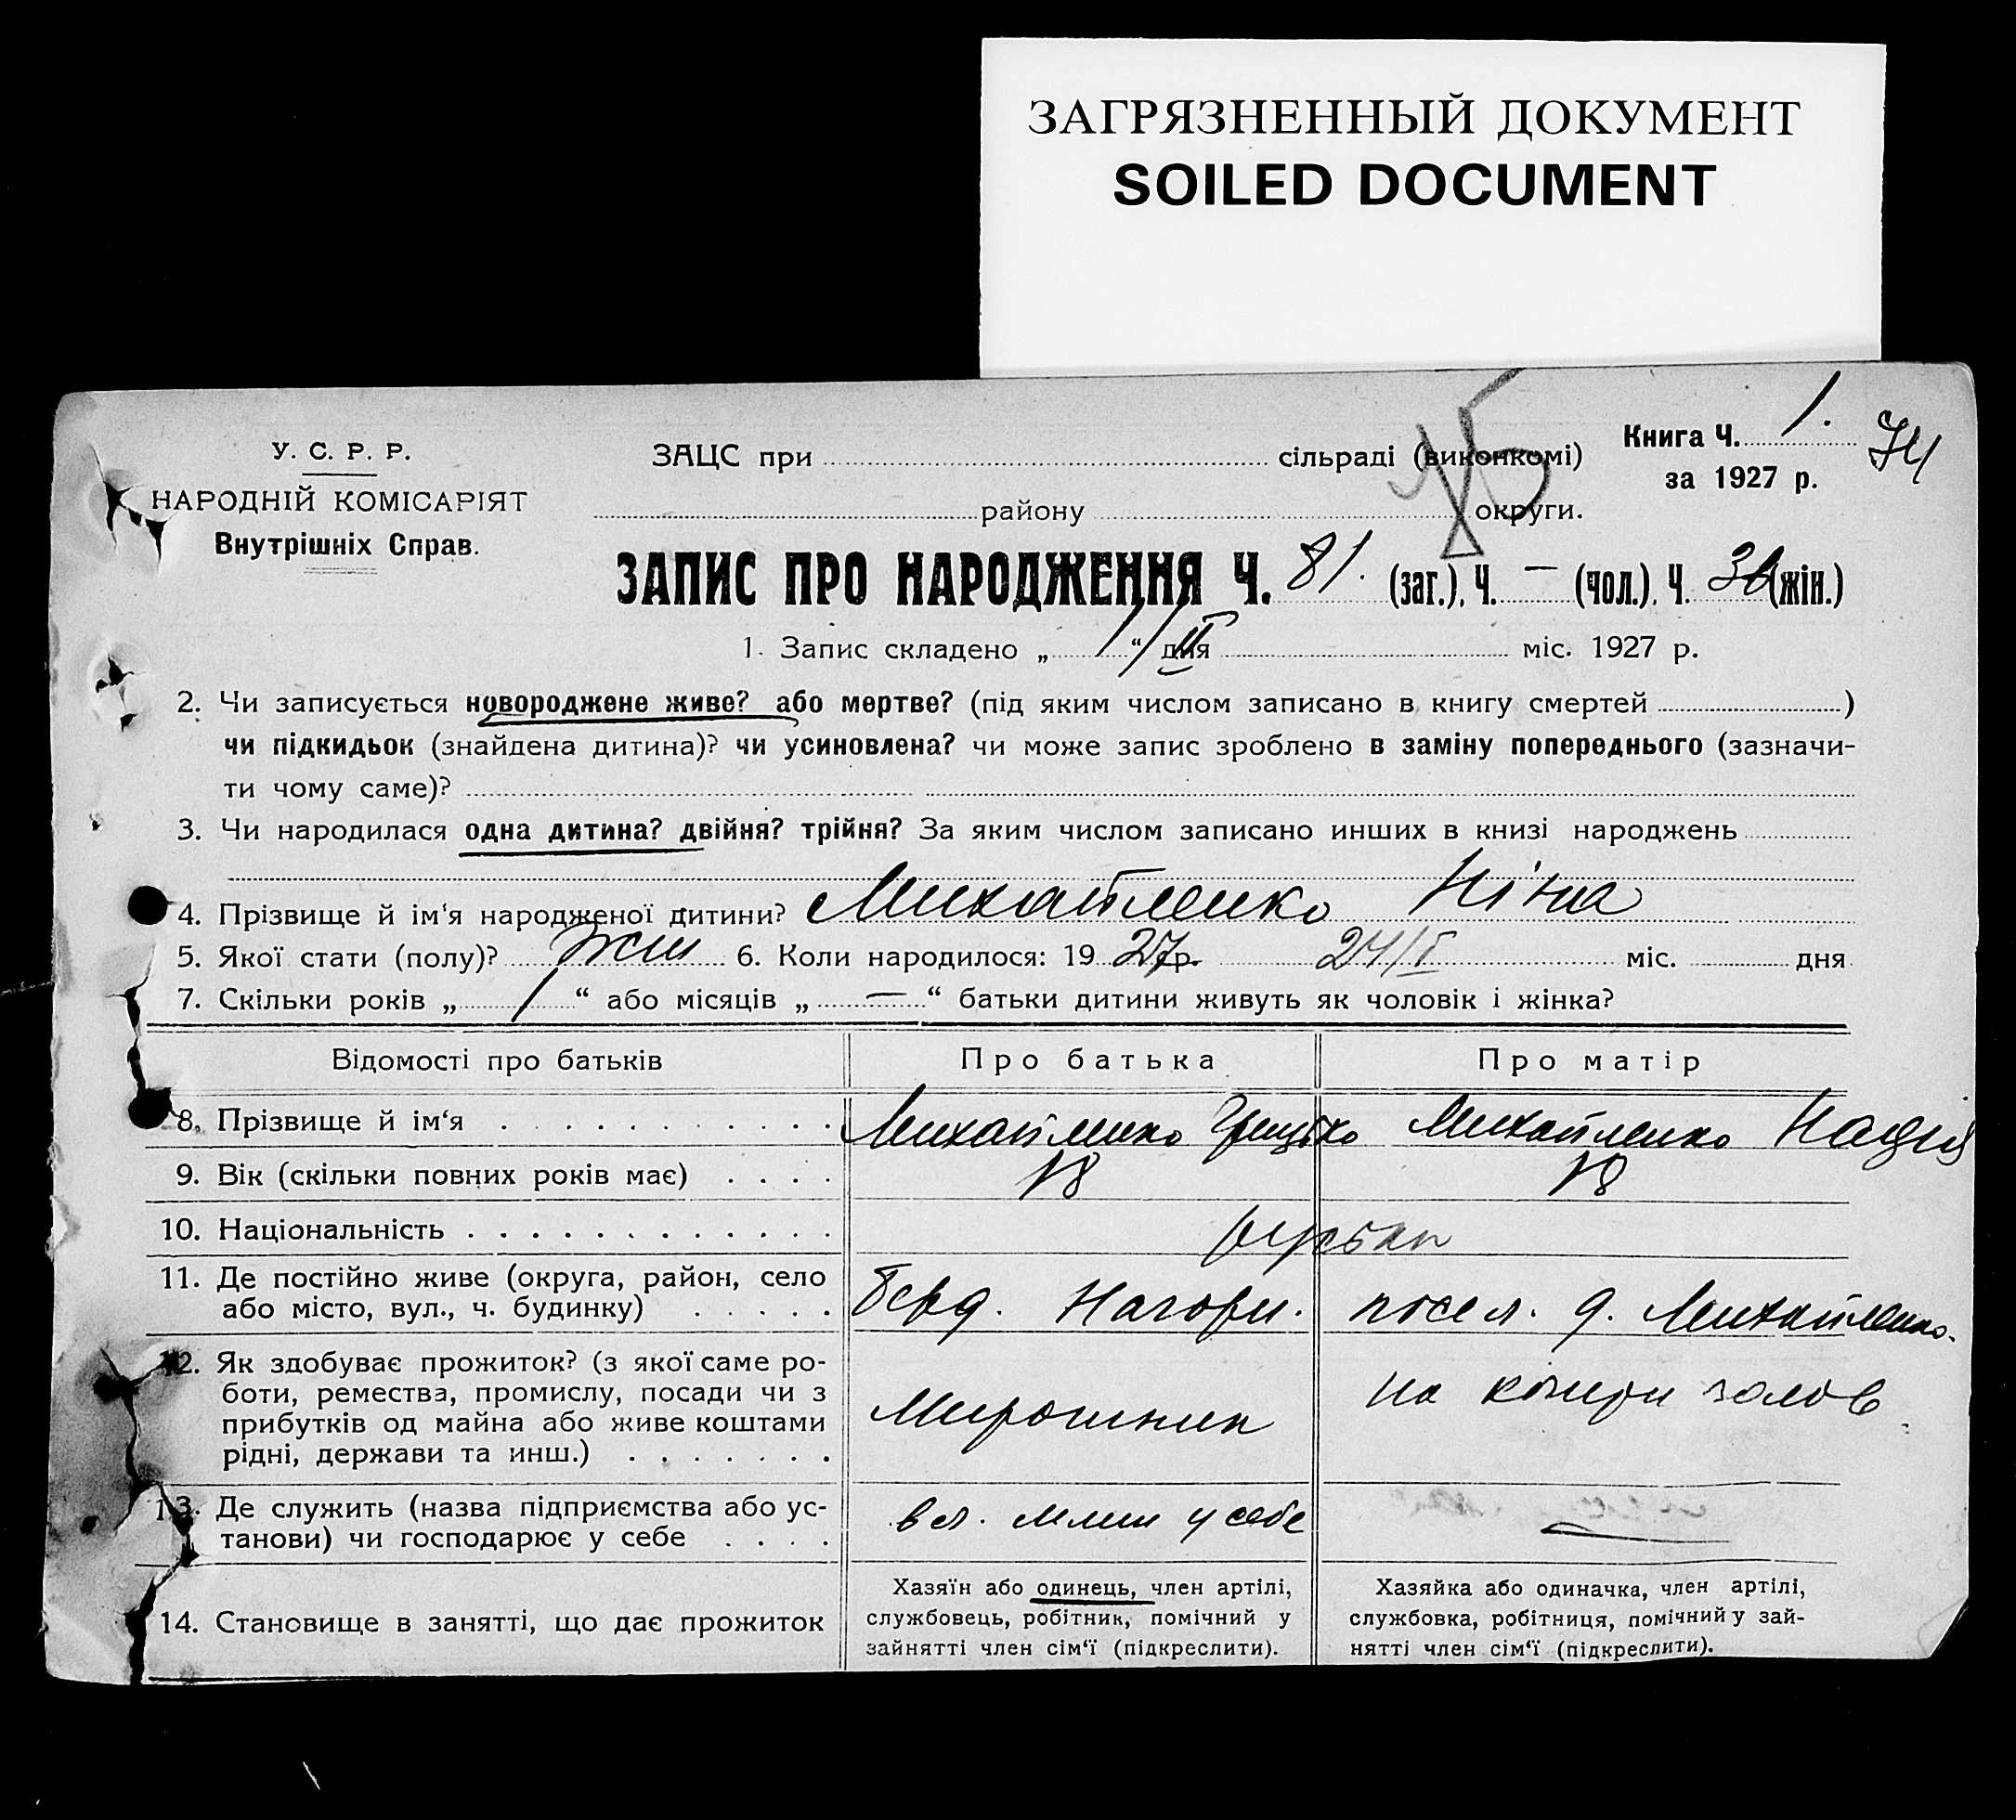 ЗАГРЯЗНЕННЫЙ ДОКУМЕНТ
SOILED DOCUMENT
У. С. Р. Р.
НАРОДНІЙ КОМІСАРІЯТ
Внутрішніх Справ.
ЗАЦС при сільраді (виконкомі)
району округи.
Книга Ч. 1. 74
за 1927 р.
ЗАПИС ПРО НАРОДЖЕННЯ Ч. 81. (заг.), Ч. — (чол.), Ч. (жін.)
1. Запис складено „ 1 “ дня II міс. 1927 р.
2. Чи записується новороджене живе? або мертве? (під яким числом записано в книгу смертей )
чи підкидьок (знайдена дитина)? чи усиновлена? чи може запис зроблено в заміну попереднього (зазначи-
ти чому саме)?
3. Чи народилася одна дитина? двійня? трійня? За яким числом записано инших в книзі народжень
4. Прізвище й ім‘я народженої дитини? Михайленко Ніна
5. Якої стати (полу)? жін 6. Коли народилося: 19 27 р. 24/I міс. дня
7. Скільки років „ 1 “ або місяців „ — “ батьки дитини живуть як чоловік і жінка?
Відомості про батьків Про батька Про матір
8. Прізвище й ім‘я Михайленко Грицько Михайленко Надія
9. Вік (скільки повних років має) 18 18
10. Національність
11. Де постійно живе (округа, район, село
або місто, вул., ч. будинку)
Нагорн. посел. д. Михайленко.
12. Як здобуває прожиток? (з якої саме ро-
боти, ремества, промислу, посади чи з
прибутків од майна або живе коштами
рідні, держави та инш.)
Мирошник
на
13. Де служить (назва підприємства або ус-
танови) чи господарює у себе
вл. млин у себе
—
14. Становище в занятті, що дає прожиток
Хазяїн або одинець, член артілі,
службовець, робітник, помічний у
зайнятті член сім‘ї (підкреслити).
Хазяйка або одиначка, член артілі,
службовка, робітниця, помічний у зай-
нятті член сім‘ї (підкреслити).